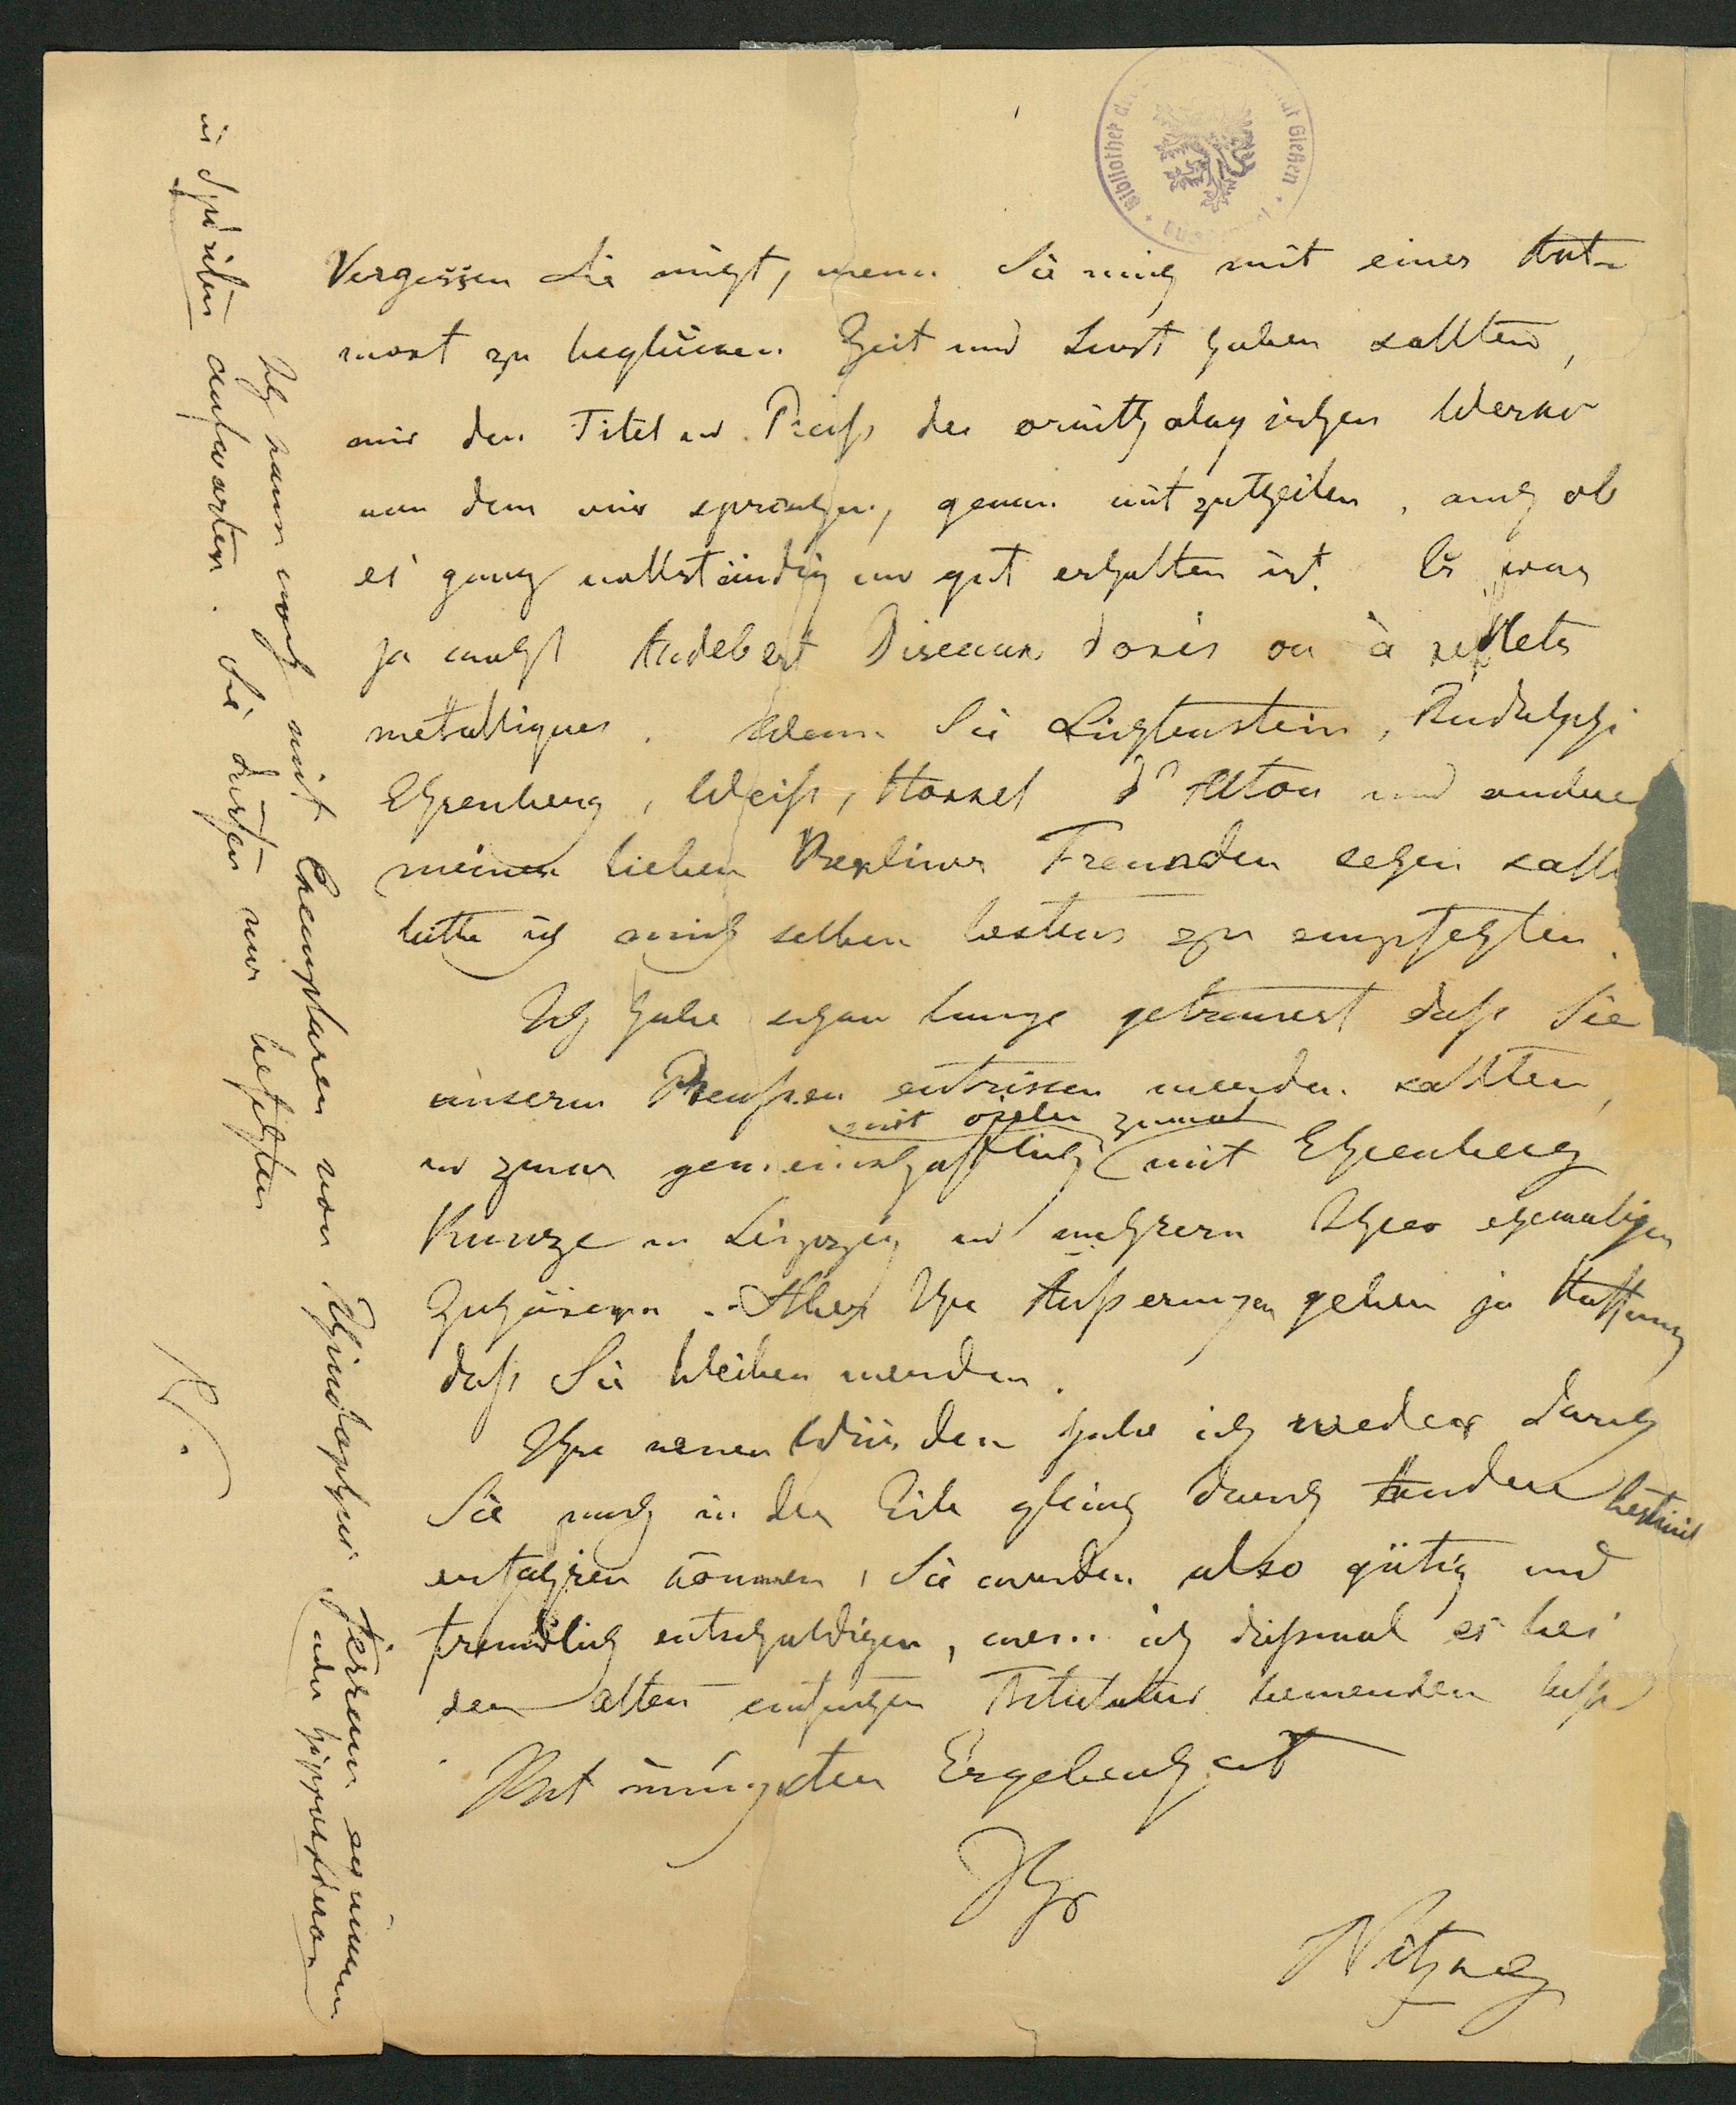 Vergessen Sie nicht, wenn Sie mich mit einer Ant-
wort zu beglücken Zeit und Lust haben sollten,
mir den Titel u. Preiß des ornithologischen Werks
von dem wir sprachen, genau mitzutheilen, auch ob
es ganz vollständig und gut erhalten ist. Es war
ja wohl Audebert Oiseaux dorés ou à reflets
metalliques. Wenn Sie Lichtenstein, Rudolphi
Ehrenberg, Weiß, Horkel d'Alton und andere
meiner lieben Berliner Freunden sehen sollten
bitte ich mich selben bestens zu empfehlen.
Ich habe schon lange getrauert daß Sie
unserm Preußen entrissen werden sollten,
mit vielen zumal
und zwar gemeinschaftlich mit Ehrenberg
Kunze in Leipzig und mehrern Ihrer ehemaligen
Zuhörern. Aber Ihre Aeußerungen geben ja Hoffnung
daß Sie bleiben werden.
Ihre neuen Würden habe ich weder durch
Sie noch in der Eile gleich durch Andere bestimt
erfahren können, Sie werden also gütig und
freundlich entschuldigen, wenn ich dießmal es bei
der alten einfachen Titulatur bewenden laße
Mit innigster Ergebenheit
Ihr
Nitzsch
Ich kann noch mit Exemplaren von Rhinolophus ferrum equinum
oder hipposideros
in Spiritus aufwarten. Sie dürfen nur befehlen
N.
Bibliothek der Gießen